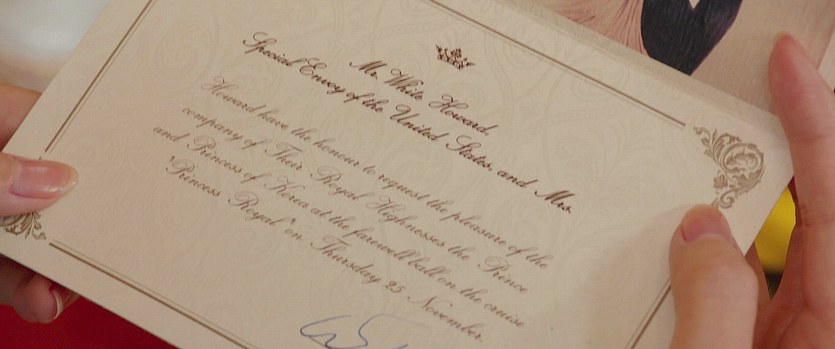 Mr. White Howard
Special Envoy of the United States and Mrs.
Howard have the honour to request the pleasure of the
company of Their Royal Highnesses the Prince
and Princess of Korea at the farewell ball on the cruise
"Princess Royal" on Thursday 25 November.